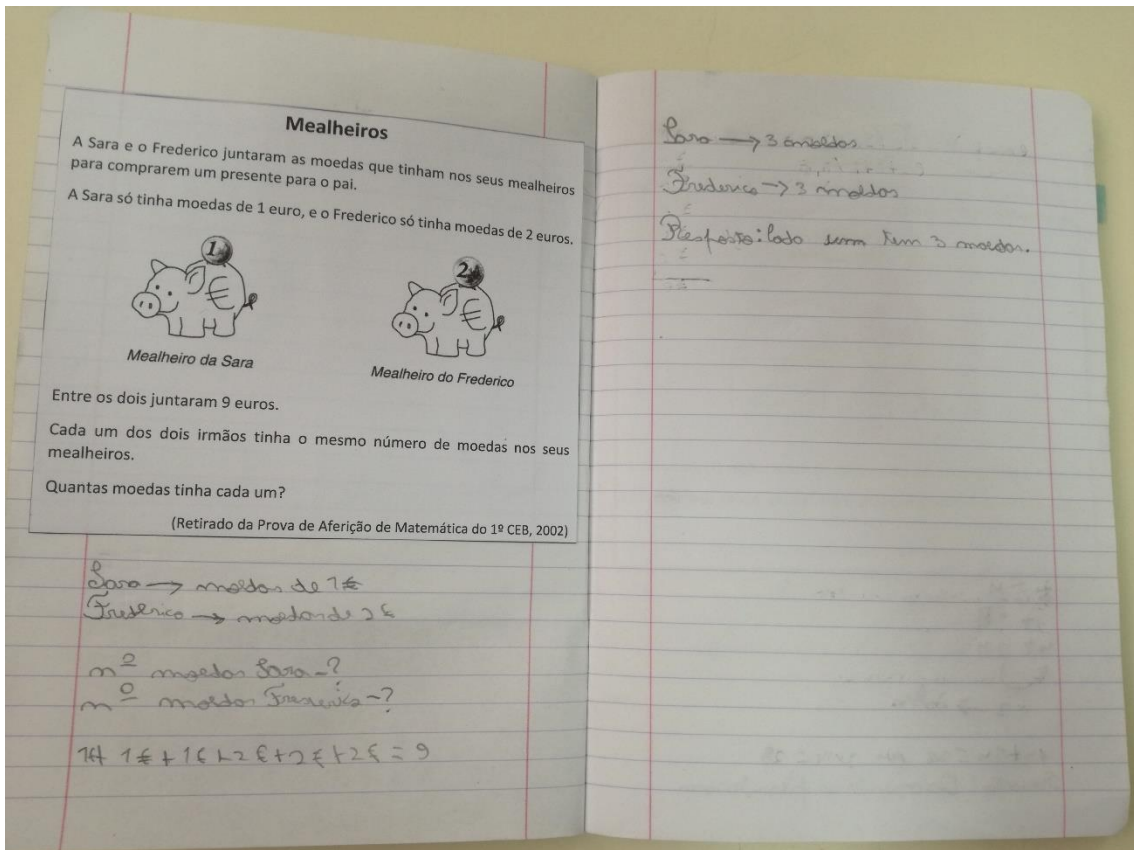 Mealheiros
A Sara e o Frederico juntaram as moedas que tinham nos seus mealheiros
para comprarem um presente para o pai.
A Sara só tinha moedas de 1 euro, e o Frederico só tinha moedas de 2 euros.
1 €
2 €
Mealheiro da Sara
Mealheiro do Frederico
Entre os dois juntaram 9 euros.
Cada um dos dois irmãos tinha o mesmo número de moedas nos seus
mealheiros.
Quantas moedas tinha cada um?
(Retirado da Prova de Aferição de Matemática do 1º CEB, 2002)
Sara → moedas de 1€
Frederico → moedas de 2€
nº moedas Sara-?
nº moedas Frederico-?
1€ 1€+1€+2€+2€+2€=9
Sara → 3 moedas
Frederico → 3 moedas
Resposta: Cada um tem 3 moedas.